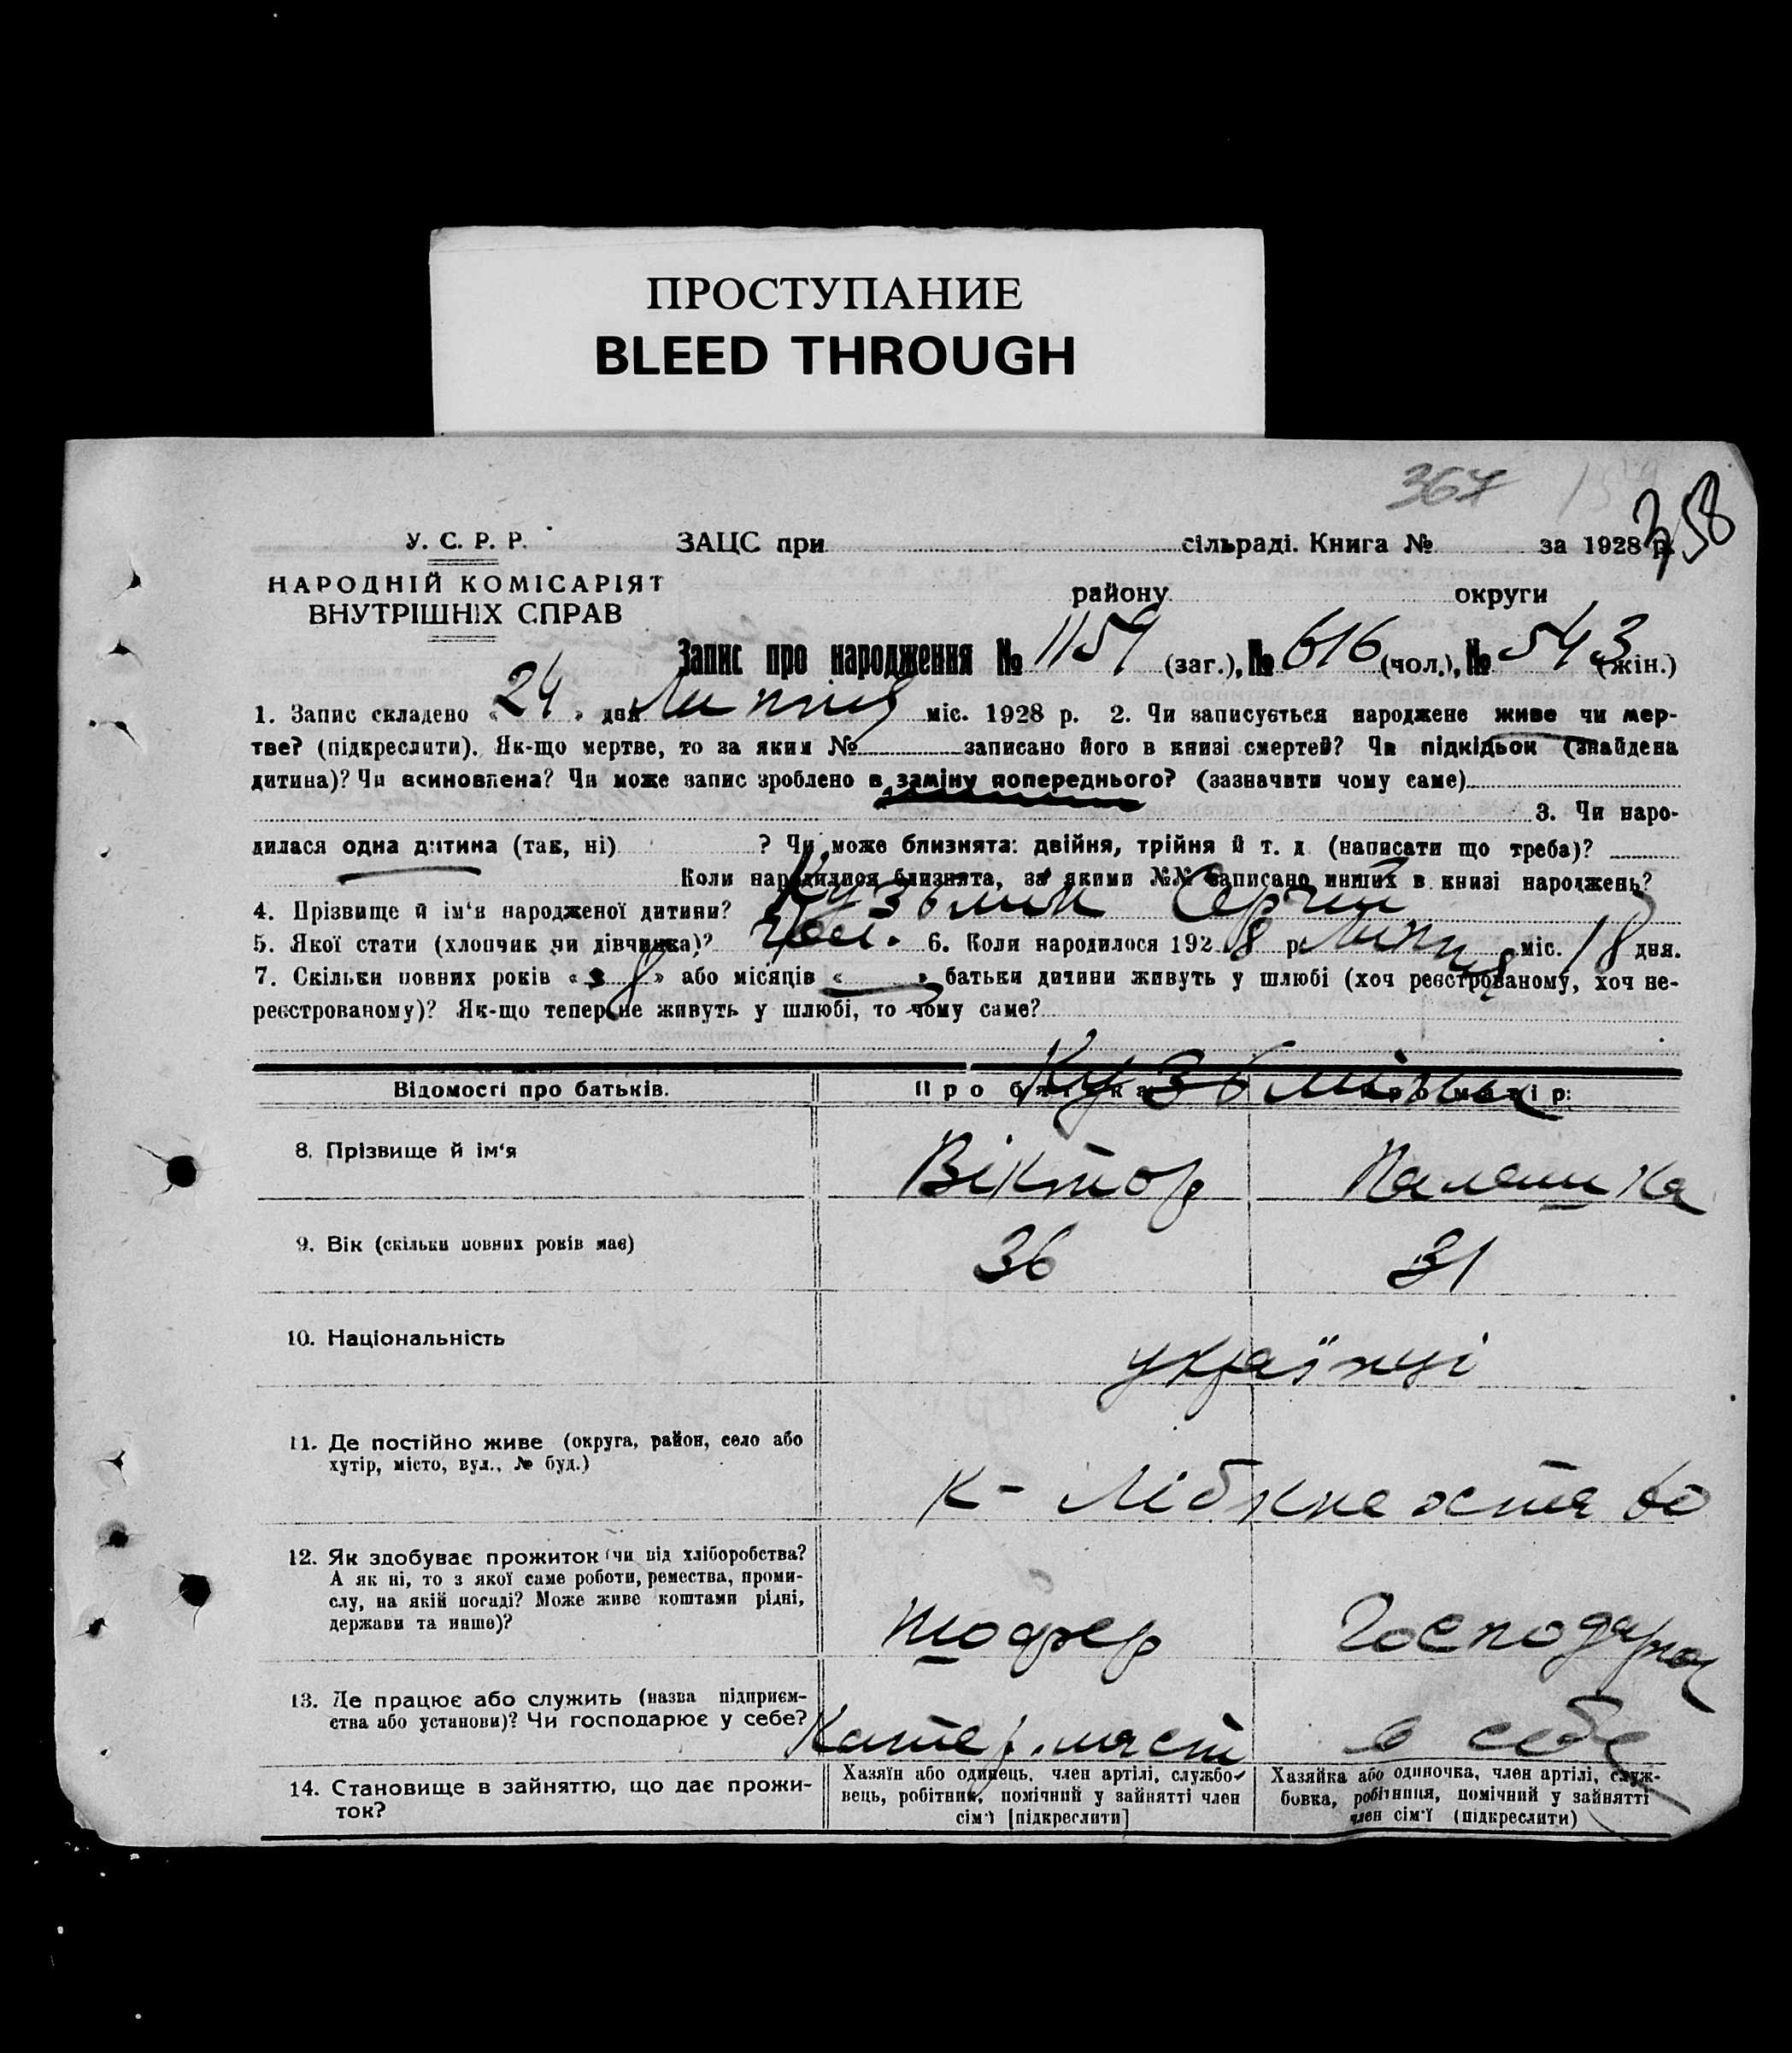 ПРОСТУПАНИЕ
BLEED THROUGH
367
358
У. С. Р. Р.
НАРОДНІЙ КОМІСАРІЯТ
ВНУТРІШНІХ СПРАВ
ЗАЦС при сільраді. Книга № за 1928 р.
району округи
Запис про народження № 1159 (заг.), № 616 (чол.), № 543 (жін.)
1. Запис складено « 24 » дня Липня міс. 1928 р. 2. Чи записується народжене живе чи мер-
тве? (підкреслити). Як-що мертве, то за яким № записано його в книзі смертей? Чи підкідьок (знайдена
дитина)? Чи всиновлена? Чи може запис зроблено в заміну попереднього? (зазначити чому саме)
3. Чи наро-
дилася одна дитина (так, ні) ? Чи може близнята: двійня, трійня й т. д (написати що треба)?
Коли народилися близнята, за якими №№ записано инших в книзі народжень?
4. Прізвище й ім'я народженої дитини? Кузьмин Сергій
5. Якої стати (хлопчик чи дівчинка)? чол. 6. Коли народилося 192 8 р. Липня міс. 18 дня.
7. Скільки повних років « 8 » або місяців « » батьки дитини живуть у шлюбі (хоч реєстрованому, хоч не-
реєстрованому)? Як-що тепер не живуть у шлюбі, то чому саме?
Відомості про батьків. Про батька Про матір:
Кузьміни
8. Прізвище й ім'я Віктор Палашка
9. Вік (скільки повних років має) 36 31
10. Національність українці
11. Де постійно живе (округа, район, село або
хутір, місто, вул., № буд.) К- Лібкнехта 60
12. Як здобуває прожиток (чи від хліборобства?
А як ні, то з якої саме роботи, ремества, проми-
слу, на якій посаді? Може живе коштами рідні,
держави та инше)? шофер Господарка
13. Де працює або служить (назва підприєм-
ства або установи)? Чи господарює у себе? в себе
14. Становище в зайняттю, що дає прожи-
ток?
Хазяїн або одинець, член артілі, службо-
вець, робітник, помічний у зайнятті член
сім'ї [підкреслити]
Хазяйка або одиночка, член артілі, служ-
бовка, робітниця, помічний у зайнятті
член сім'ї (підкреслити)